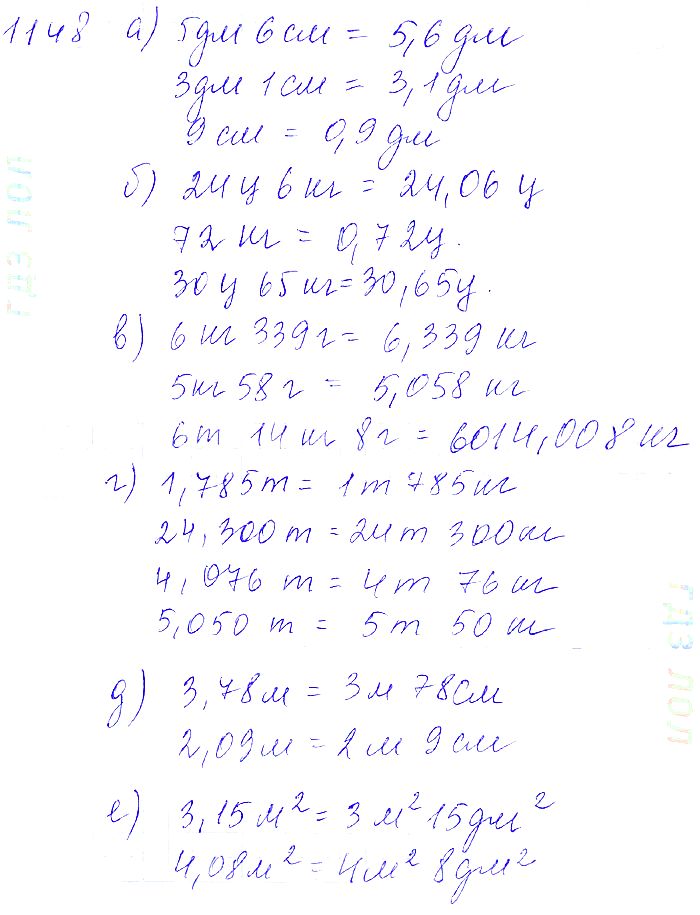 1148 а) 5дм 6см = 5,6 дм
3дм 1см = 3,1дм
9 см = 0,9 дм
б) 24ц 6 кг = 24,06 ц
72 кг = 0,72ц.
30ц 65кг=30,65ц.
в) 6 кг 339г = 6,339 кг
5кг 58 г = 5,058 кг
6т 14 кг 8г = 6014,008 кг
г) 1,785т = 1т 785кг
24,300т = 24т 300кг
4,076 т = 4т 76 кг
5,050 т = 5т 50 кг
д) 3,78м = 3м 78см
2,09м = 2м 9см
е) 3,15м² = 3м² 15дм²
4,08м² = 4м² 8дм²